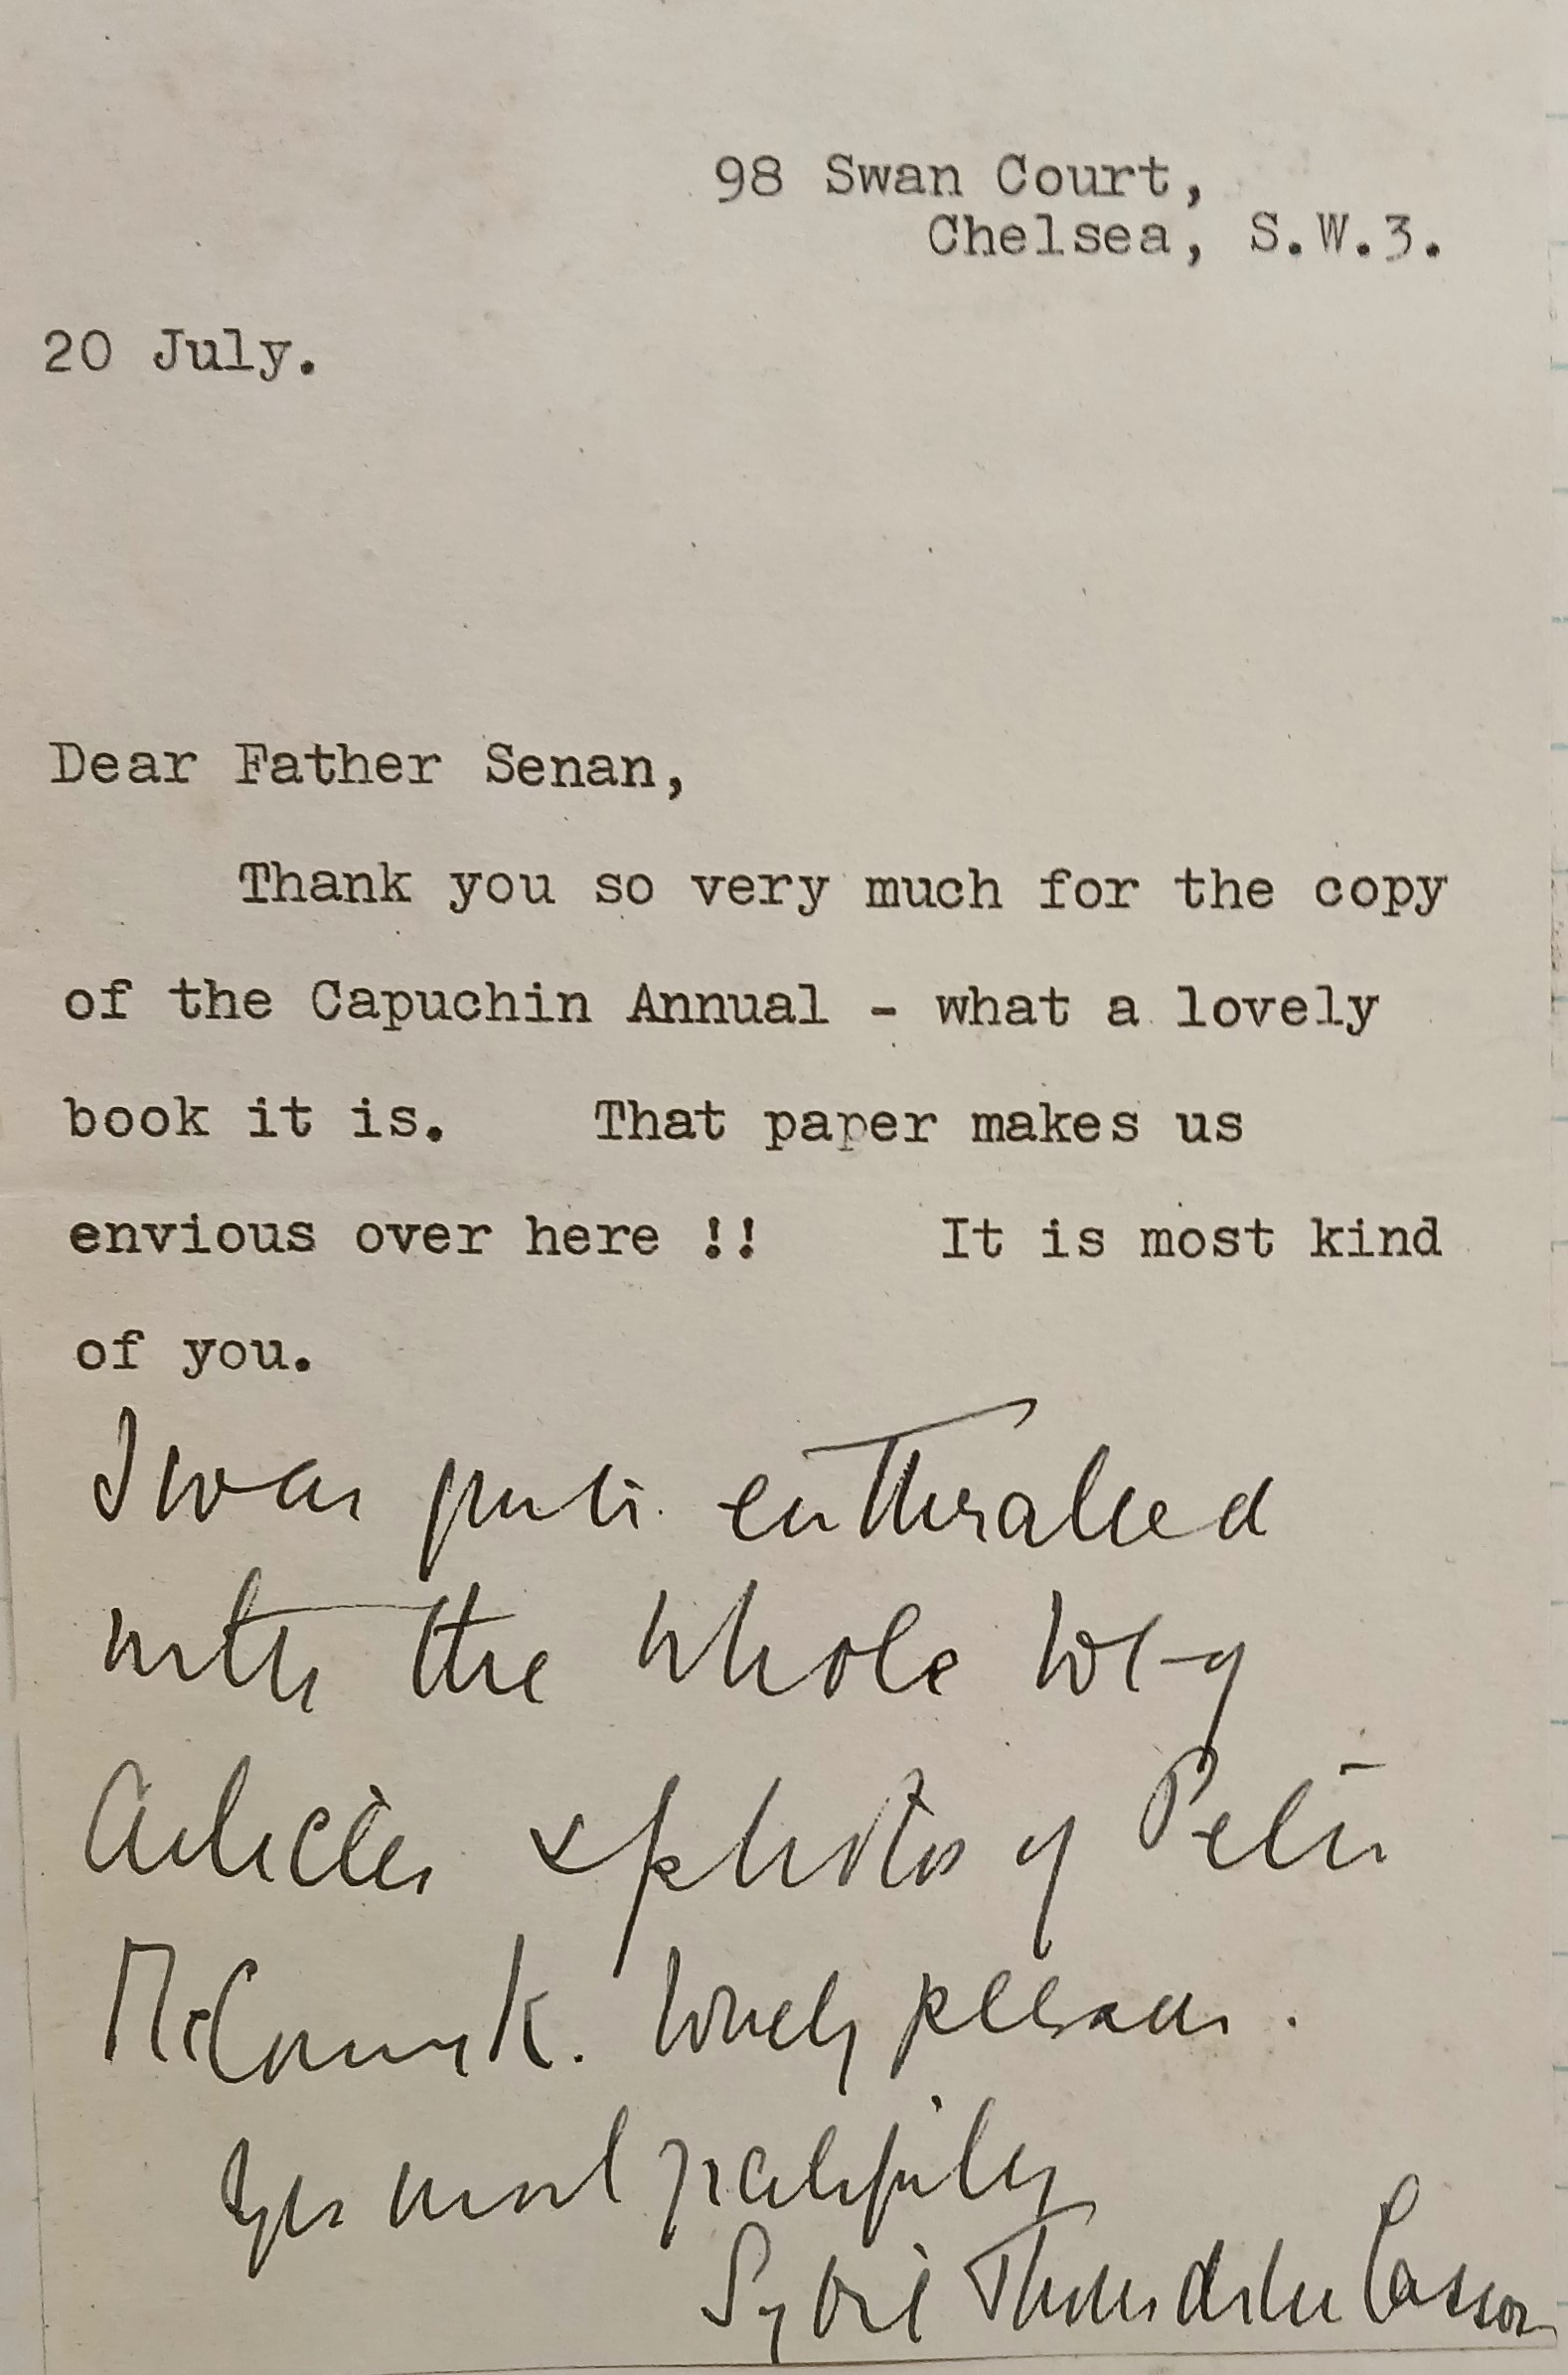 98 Swan Court,
Chelsea, S.W.3.
20 July.
Dear Father Senan,
Thank you so very much for the copy
of the Capuchin Annual - what a lovely
book it is. That paper makes us
envious over here !! It is most kind
of you.
I was quite enthralled
with the whole
Articles & photos of Peter
McCormick. lovely person.
Yrs most gratefully
Sybil Thorndike Casson